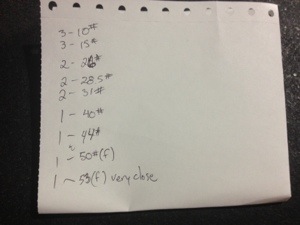 3 - 10#
3 - 15#
2 -
2 - 28.5#
2 - 31#
1 - 40#
1 - 44#
1 - 50#(f)
1 - 53(f) very close